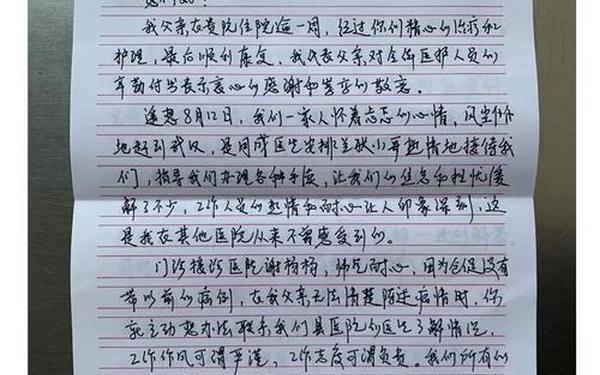 我父亲在贵院住院逾一周，经过你们精心的治疗和
护理，最后顺利康复，我代表父亲对全体医护人员的
辛勤付出表示衷心的感谢和崇高的敬意。
遥想8月12日，我们一家人怀着忐忑的心情，风尘仆仆
地赶到武汉，是周成医生安排关敏小哥热情地接待我
们，指导我们办理各种手续，让我们的焦急和担忧缓
解了不少，工作人员的热情和耐心让人印象深刻，这
是我在其他医院从来不曾感受到的。
门诊接诊医院谢杨杨，帅气耐心，因为仓促没有
带以前的病例，在我父亲无法清楚陈述病情时，你
就主动想办法联系我们县医院的医生了解情况，
工作作风可谓严谨，工作态度可谓负责。我们所有的